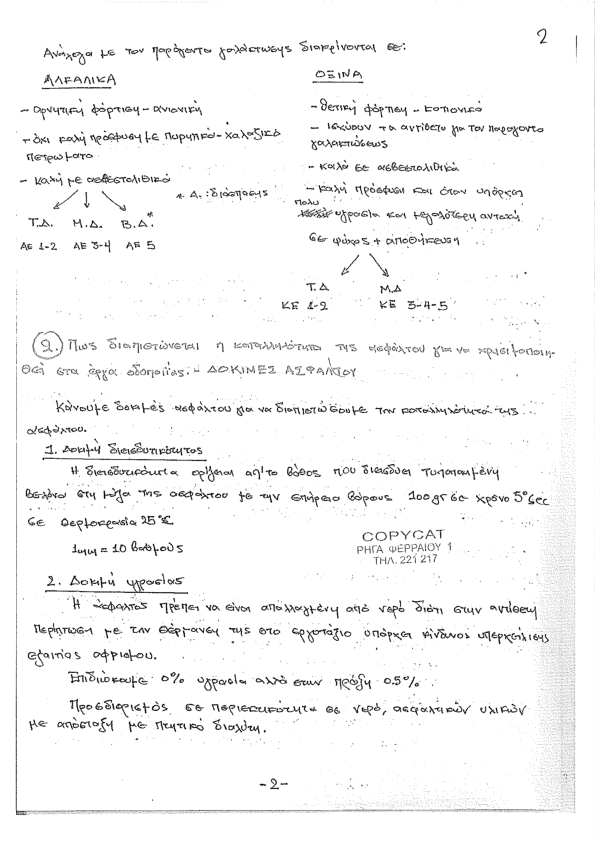 2
Ανάλογα με τον παράγοντα γαλάκτωσης διακρίνονται σε:
ΑΛΚΑΛΙΚΑ
- αρνητική φόρτιση - ανιονική
- όχι καλή πρόσφυση με πυρητικό - χαλαζικά
πετρώματα
- καλή με ασβεστολιθικά
* Δ. : διάσπασης
Τ.Δ. Μ.Δ. Β.Δ.*
ΑΕ 1-2 ΑΕ 3-4 ΑΕ 5
ΟΞΙΝΑ
- θετική φόρτιση - κατιονικά
- ισχύουν τα αντίθετα για τον παράγοντα
γαλακτώσεως
- καλά σε ασβεστολιθικά
- καλή πρόσφυση και όταν υπάρχει
πολυ
υγρασία και μεγαλύτερη αντοχή
σε ψύχος + αποθήκευση
Τ.Δ Μ.Δ
ΚΕ 1-2 ΚΕ 3-4-5
2. Πως διαπιστώνεται η καταλληλότητα της ασφάλτου για να χρησιμοποιη-
θεί στα έργα οδοποιίας. - ΔΟΚΙΜΕΣ ΑΣΦΑΛΤΟΥ
Κάνουμε δοκιμές ασφάλτου για να διαπιστώσουμε την καταλληλότητα της
ασφάλτου.
1. Δοκιμή διεισδυτικότητος
Η διεισδυτικότητα ορίζεται απ'το βάθος που διεισδύει τυποποιημένη
βελόνα στη μάζα της ασφάλτου με την επήρεια βάρους 100gr σε χρόνο 5 sec
σε θερμοκρασία 25°C
1mm = 10 βαθμούς
COPYCAT
ΡΗΓΑ ΦΕΡΡΑΙΟΥ 1
ΤΗΛ. 221 217
2. Δοκιμή υγρασίας
Η άσφαλτος πρέπει να είναι απαλλαγμένη από νερό διότι στην αντίθετη
περίπτωση με την θέρμανση της στο εργοτάξιο υπάρχει κίνδυνος υπερχείλισης
εξαιτίας αφρισμού.
Επιδιώκουμε 0% υγρασία αλλά στην πράξη 0.5%
Προσδιορισμός σε περιεκτικότητα σε νερό, ασφαλτικών υλικών
με απόσταξη με πτητικό διαλύτη.
-2-